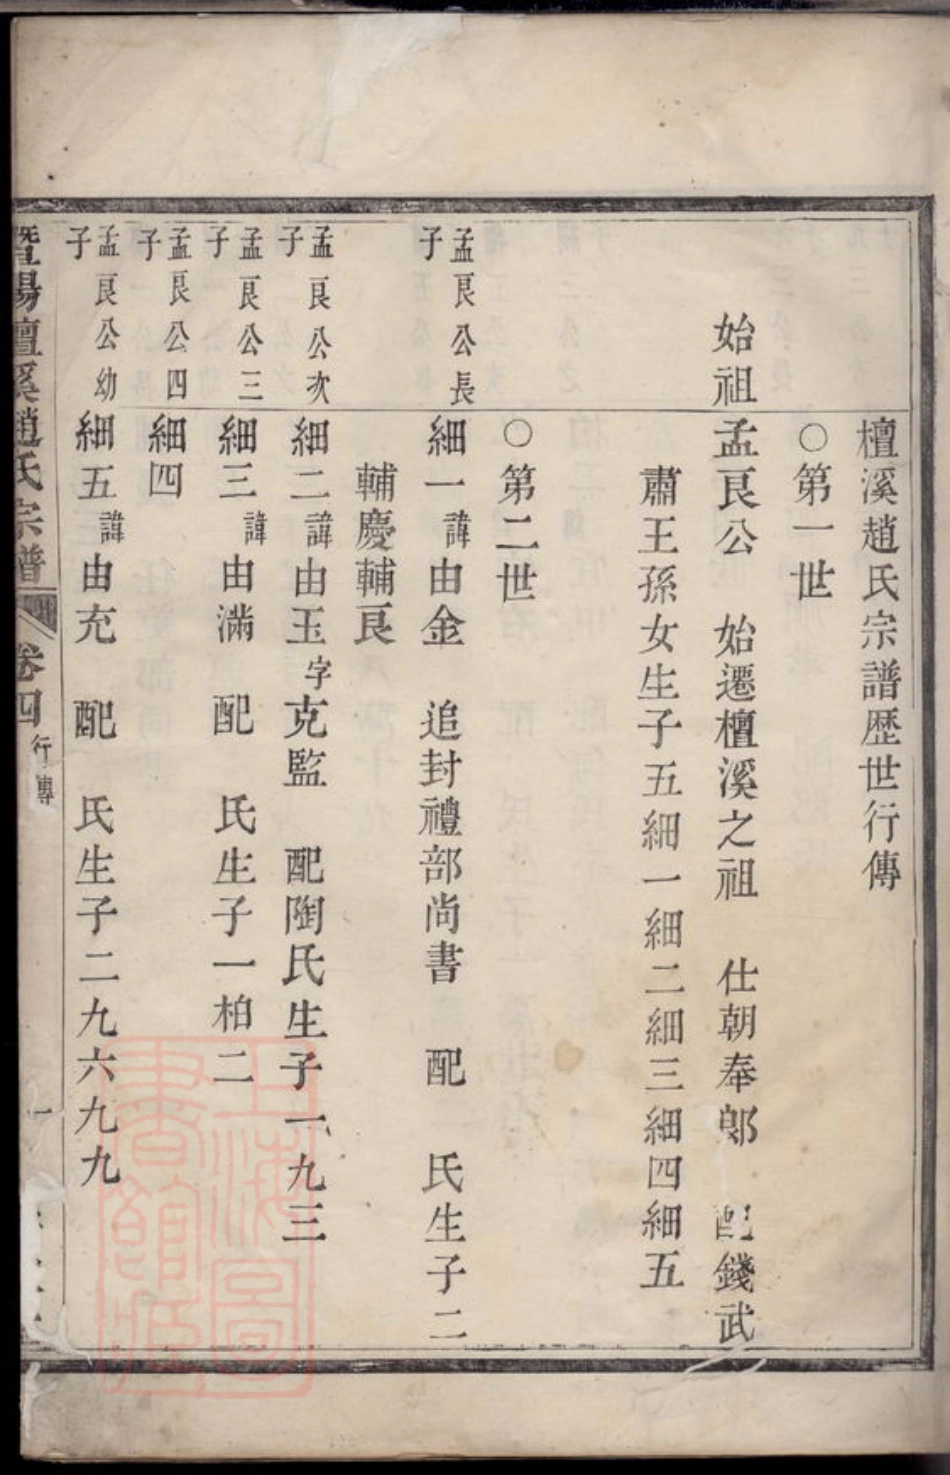 檀溪趙氏宗譜歷世行傳
○第一世
始祖
孟良公　始遷檀溪之祖　仕朝奉郎　配錢武
肅王孫女生子五細一細二細三細四細五
○第二世
孟良公長子
細一諱由金　追封禮部尚書　配　氏生子二
輔慶輔良
孟良公次子
細二諱由玉字克監　配陶氏生子一九三
孟良公三子
細三諱由滿　配　氏生子一柏二
孟良公四子
細四
孟良公幼子
細五諱由充　配　氏生子二九六九九
暨陽檀溪趙氏宗譜　卷四　行傳　一
上海圖書館藏